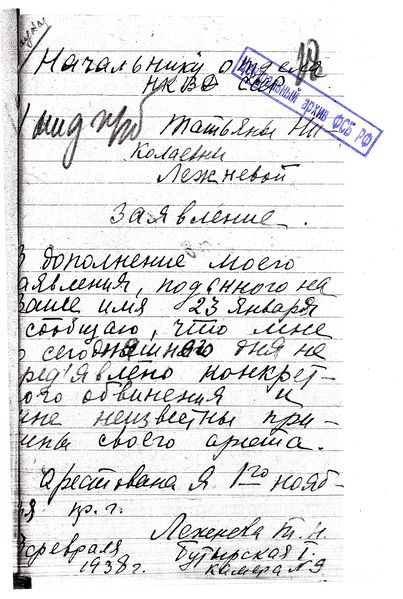 Начальнику отдела
НКВД СССР
Центральный архив ФСБ РФ
Татьяны Ни-
колаевны
Лежневой
Заявление.
В дополнение моего
аявления, поданного на
Ваше имя 23 января
сообщаю, что мне
о сегодняшнего дня не
ред'явлено конкрет-
ого обвинения и
мне неизвестны при-
ины своего ареста.
Арестована я 1го нояб-
ря пр. г.
Лежнева Т. Н.
февраля Бутырская т.
1938г. камера N 9